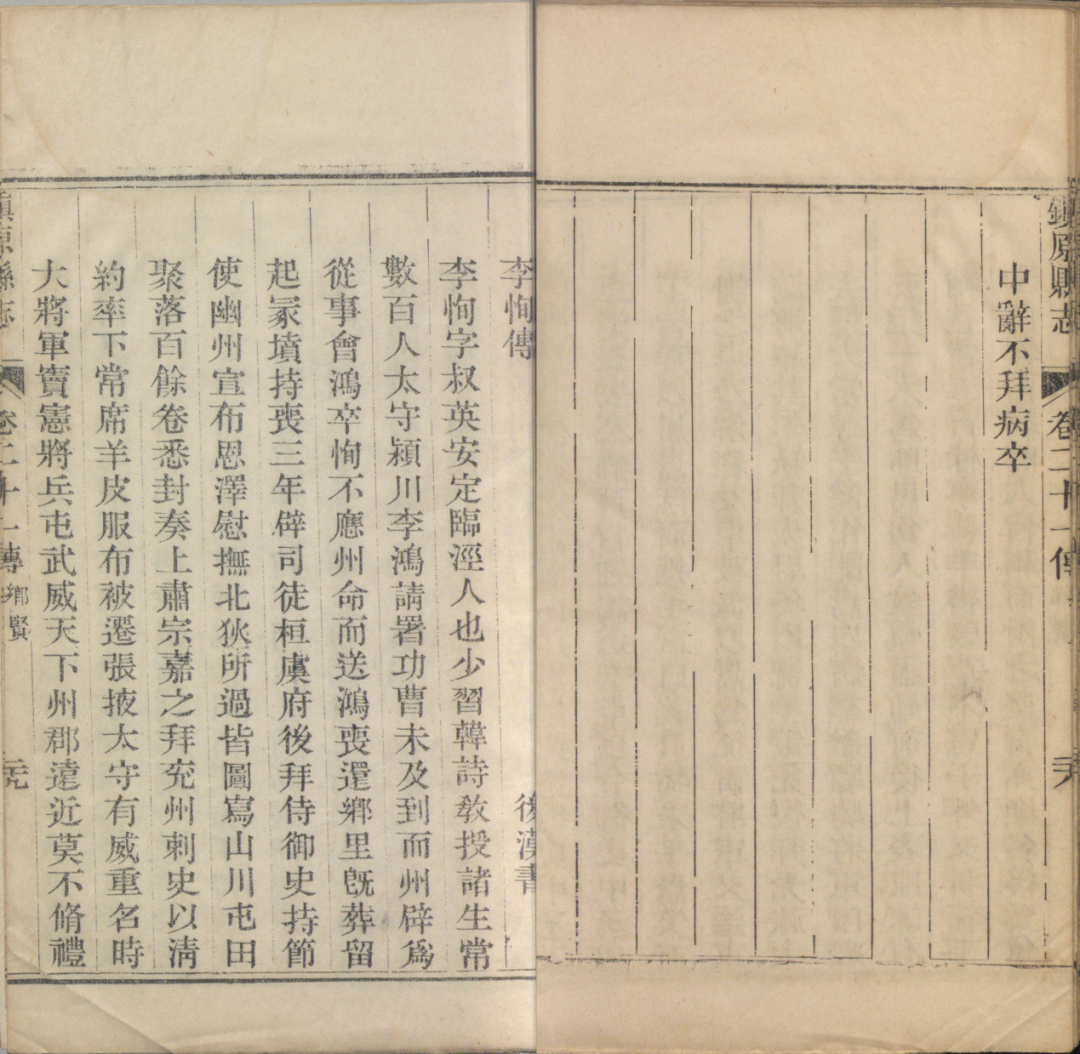 鎮原縣志
卷二十一傳
中辭不拜病卒
李恂傳
後漢書
李恂字叔英安定臨涇人也少習韓詩敎授諸生常
數百人太守潁川李鴻請署功曹未及到而州辟爲
從事會鴻卒恂不應州命而送鴻喪還鄉里旣葬留
起冢墳持喪三年辟司徒桓虞府後拜侍御史持節
使幽州宣布恩澤慰撫北狄所過皆圖寫山川屯田
聚落百餘卷悉封奏上肅宗嘉之拜兖州刺史以淸
約率下常席羊皮服布被遷張掖太守有威重名時
大將軍竇憲將兵屯武威天下州郡遠近莫不脩禮
鎮原縣志
卷二十一傳
鄉賢